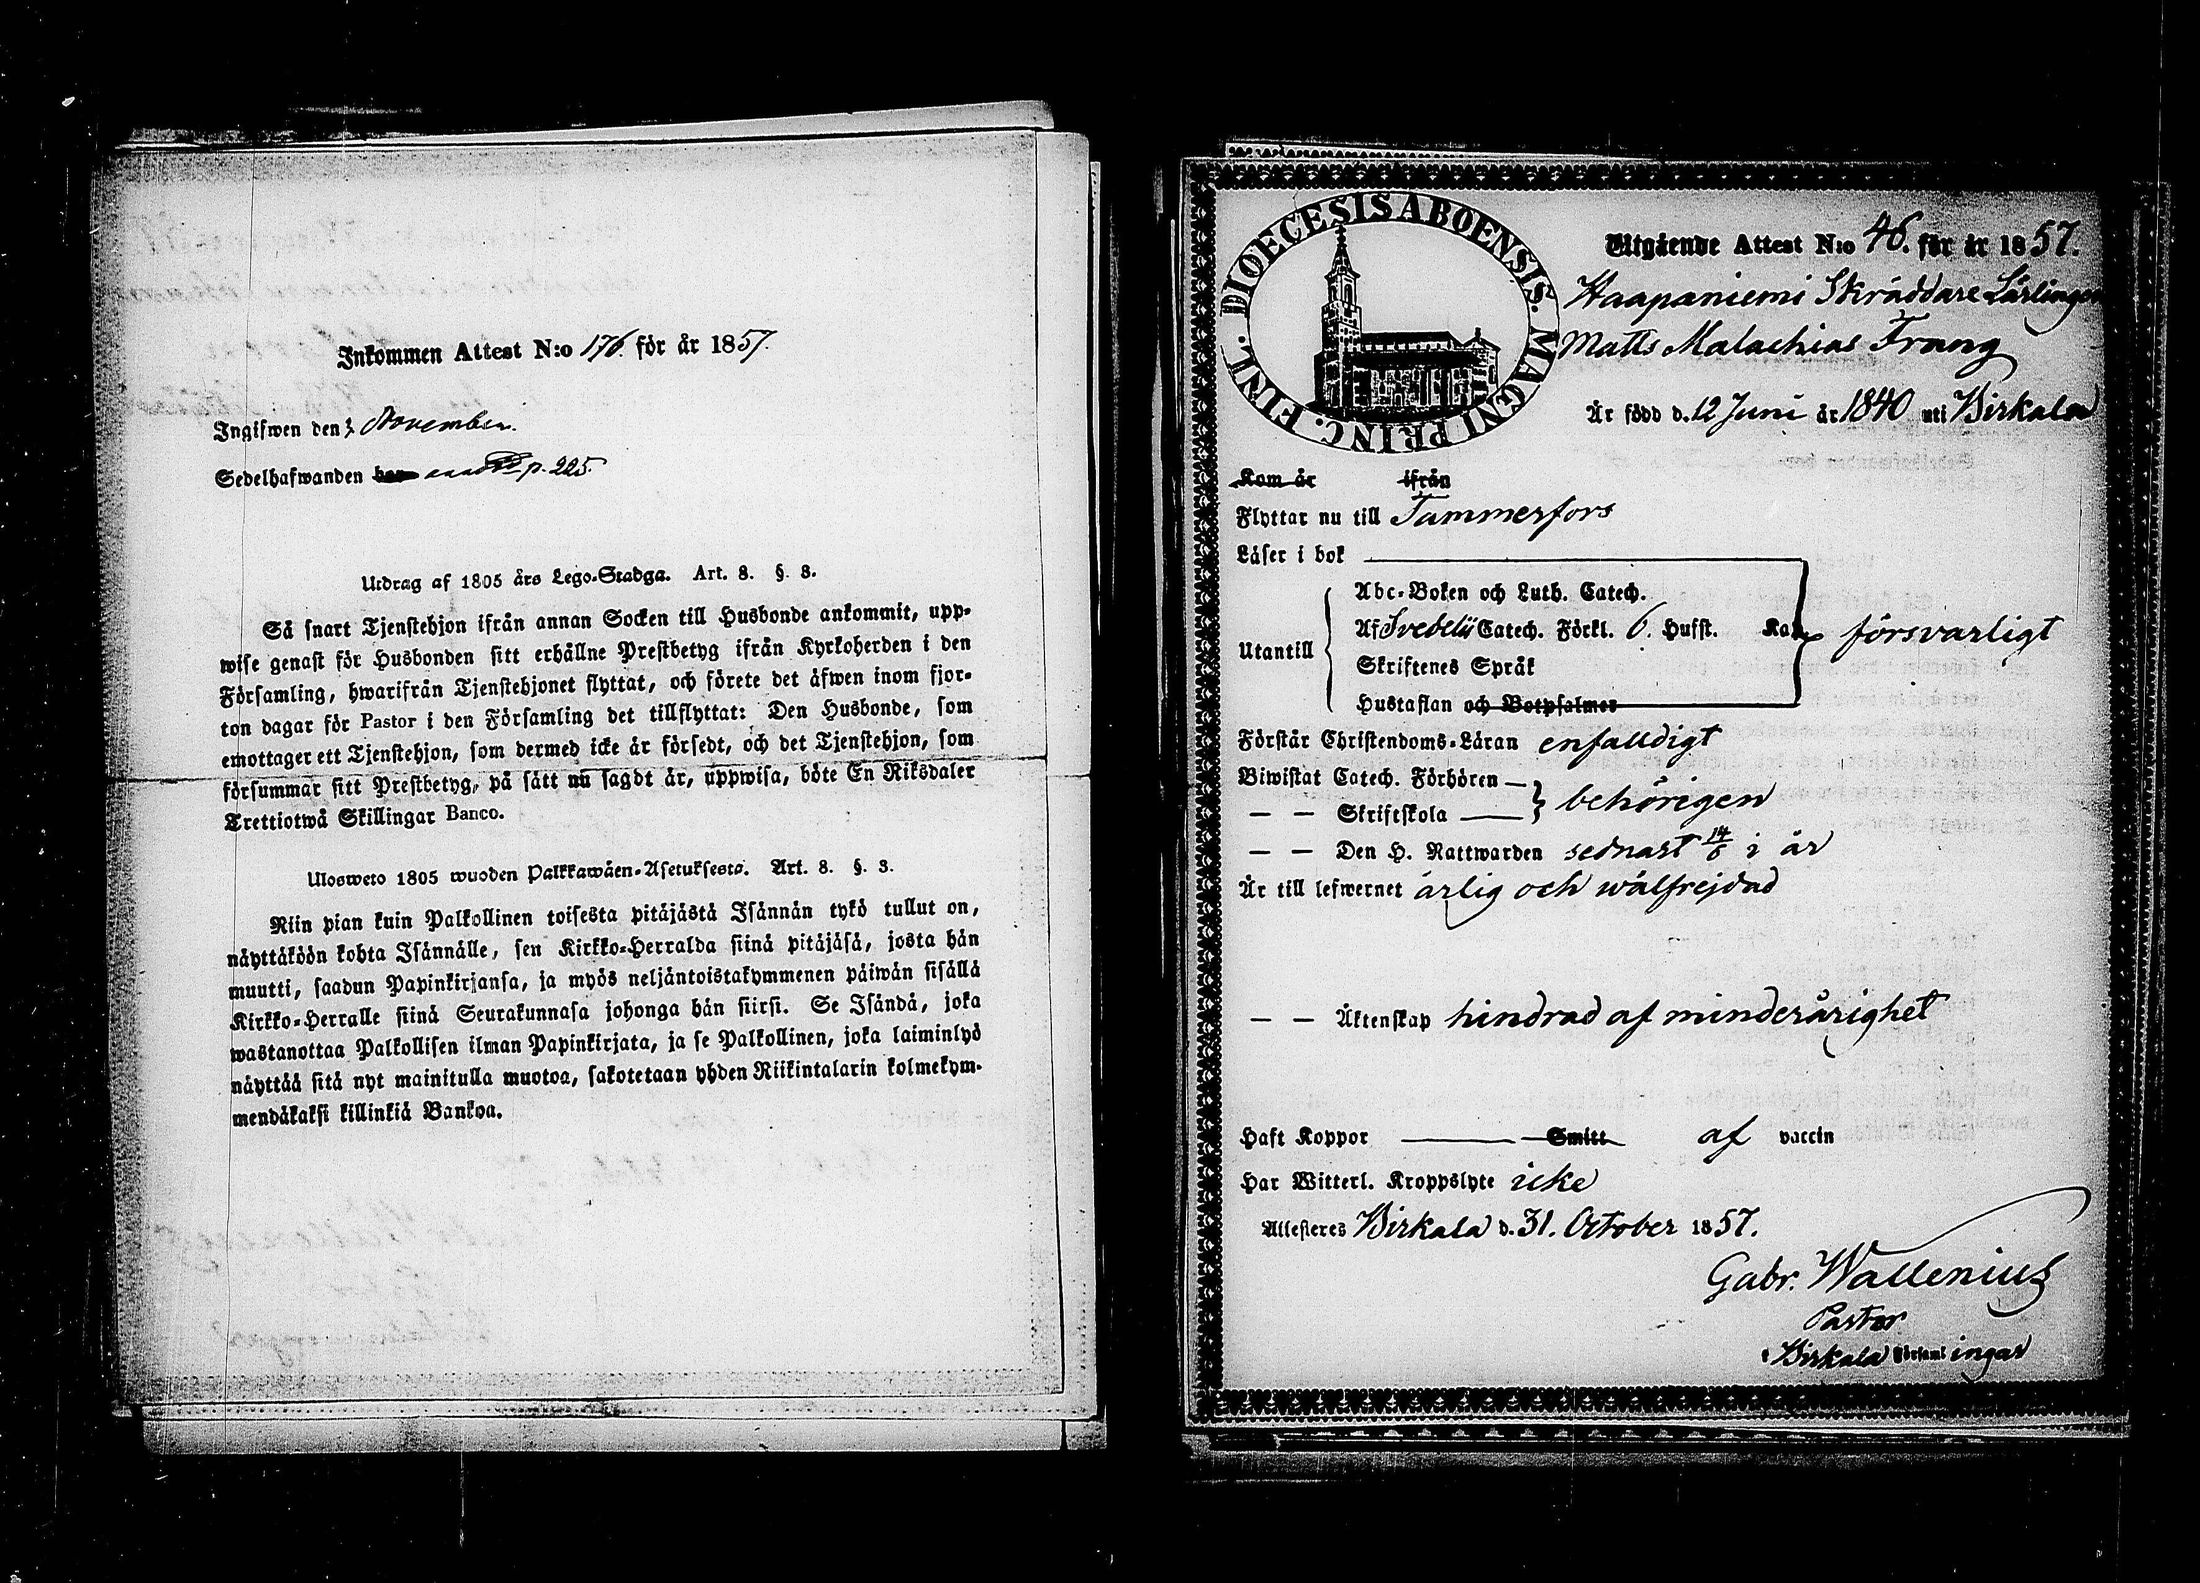 Inkommen Attest N:o 176. för år 1857.
Ingifwen den 3 November.
Sedelhafwanden p. 225.
Utdrag af 1805 års Lego-Stadga. Art. 8. §. 3.
Så snart Tjenstehjon ifrån annan Socken till Husbonde ankommit, upp-
wise genast för Husbonden sitt erhållne Prestbetyg ifrån Kyrkoherden i den
Församling, hwarifrån Tjenstehjonet flyttat, och förete det äfwen inom fjor-
ton dagar för Pastor i den Församling det tillflyttat: Den Husbonde, som
emottager ett Tjenstehjon, som dermed icke är försedt, och det Tjenstehjon, som
försummar sitt Prestbetyg, på sätt nu sagdt är, uppwisa, böte En Riksdaler
Trettiotwå Skillingar Banco.
Ulosweto 1805 wuoden Palkkawäen-Asetuksesta. Art. 8. §. 3.
Niin pian kuin Palkollinen toisesta pitäjästä Isännän tykö tullut on,
näyttäköön kohta Isännälle, sen Kirkko-Herralda siinä pitäjäsä, josta hän
muutti, saadun Papinkirjansa, ja myös neljäntoistakymmenen päiwän sisällä
Kirkko-Herralle siinä Seurakunnasa johonga hän siirsi. Se Isändä, joka
wastanottaa Palkollisen ilman Papinkirjata, ja se Palkollinen, joka laiminlyö
näyttää sitä nyt mainitulla muotoa, sakotetaan yhden Riikintalarin kolmekym-
mendäkaksi killinkiä Bankoa.
DIOECESIS ABOENSIS. MAGNI PRINC. FINL.
Utgående Attest N:o 46. för år 1857.
Haapaniemi Skräddare Lärlingen
Matts Malachias Frang
Är född d. 12 Juni år 1840 uti Birkala
Kom år ifrån
Flyttar nu till Tammerfors
Läser i bok
Abc-Boken och Luth. Catech.
Utantill Af Svebelii Catech. Förkl. 6. Hufst. Kan försvarligt
Skriftenes Språk
Hustaflan och Botpsalmer
Förstår Christendoms-Läran enfalldigt
Biwistat Catech. Förhören
— — Skriftskola behörigen
— — Den H. Nattwarden sednast 14/6 i år
Är till lefwernet ärlig och wälfrejdad
— — Äktenskap hindrad af minderårighet
Haft Koppor Smitt af vaccin
Har Witterl. Kroppslyte icke
Attesteres Birkala d. 31. October 1857.
Gabr. Wallenius
Pastor
i Birkala Församlingar